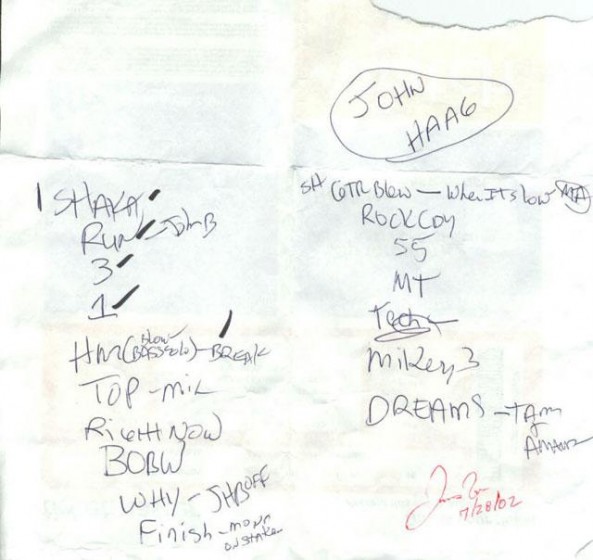 JOHN
HAAG
1 SHAKA
RUN - JHB
3
1
HM (BLOW BASS SOLO) - BREAK
TOP - MIL
RIGHT NOW
BOBW
WHY - JHB OFF
Finish - MONA
ON STAKER
SH GTR Blew - When ITs low MA
ROCK CDY
55
MT
Mikey 3
DREAMS - TAM
7/28/02